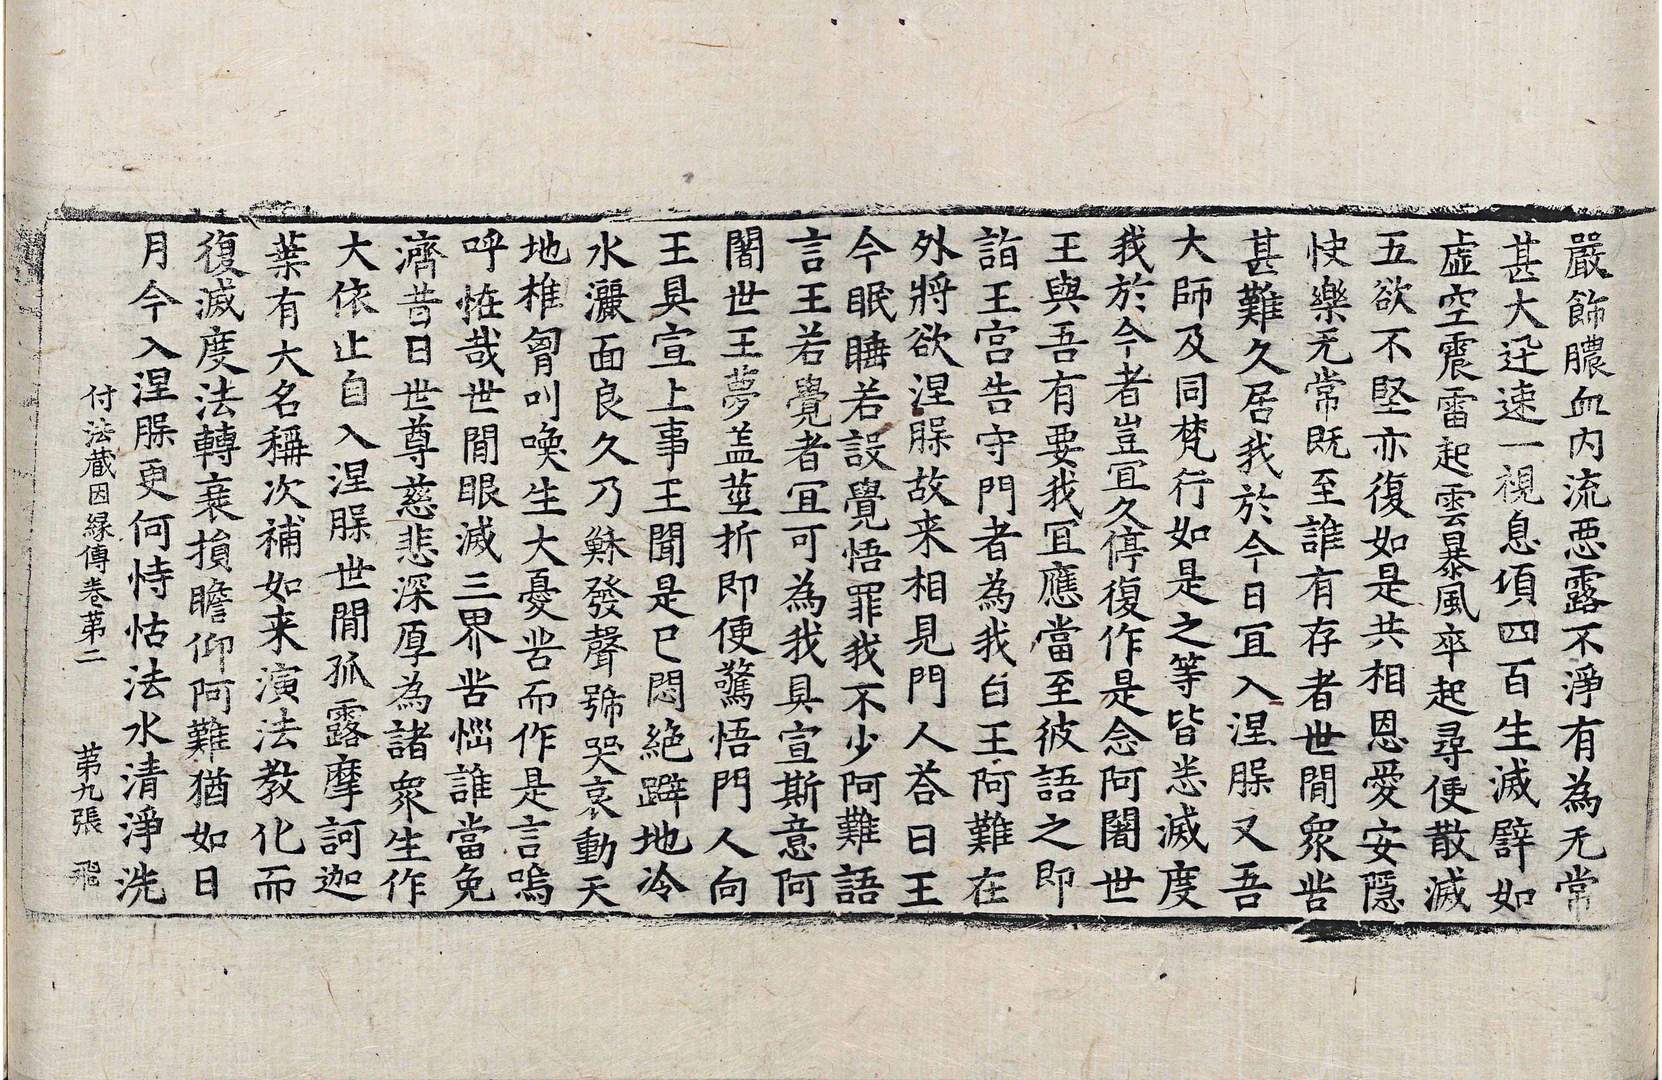 嚴飾膿血内流惡露不淨有為无常
甚大迅速一視息項四百生滅譬如
虛空震雷起雲暴風卒起尋便散滅
五欲不堅亦復如是共相恩愛安隱
快樂无常既至誰有存者世間衆苦
甚難久居我於今日冝入涅槃又吾
大師及同梵行如是之等皆悉滅度
我於今者豈冝久停復作是念阿闍世
王與吾有要我冝應當至彼語之即
詣王宮告守門者為我白王阿難在
外將欲涅槃故来相見門人荅曰王
今眠睡若設覺悟罪我不少阿難語
言王若覺者冝可為我具宣斯意阿
闍世王夢盖莖折即便驚悟門人向
王具宣上事王聞是已悶絶躃地冷
水灑面良久乃穌發聲號哭哀動天
地椎胷叫喚生大憂苦而作是言嗚
呼恠哉世間眼滅三界苦惱誰當免
濟昔日世尊慈悲深厚為諸衆生作
大依止自入涅槃世間孤露摩訶迦
葉有大名稱次補如来演法教化而
復滅度法轉衰損瞻仰阿難猶如日
月今入涅槃更何恃怙法水清淨洗
付法蔵因緣傳卷苐二 苐九張 飛